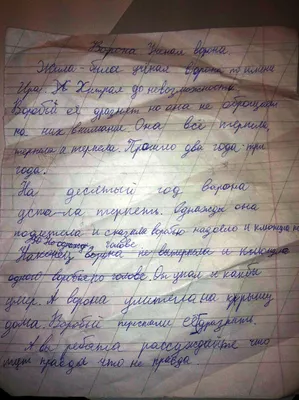 Ворона Ученая ворона
Жила-была ученая ворона по имени
до невозможности.
Воробьи её дразнят но она не обращала
на них внимание. Она всё терпела,
терпела и терпела. Прошло два года три
года.
На десятый год ворона
уста-ла терпеть. Однажды она
надоело и клюнула
голове
Наконец ворона не вытерпела и клюнула
одного воробья по голове. Он упал и
умер. А ворона улетела на крышу
дома. Воробьи перестали её дразнить.
А вы ребята рассуждайте что
правда что не правда.